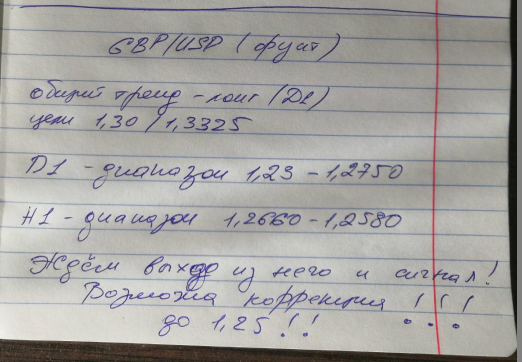 GBP/USD (фунт)
общий тренд - лонг (D1)
цели 1,30 / 1,3325
D1 - диапазон 1,23 - 1,2750
H1 - диапазон 1,2660 - 1,2580
Ждём выхода из него и сигнал!
Возможна коррекция !!!
до 1,25!!